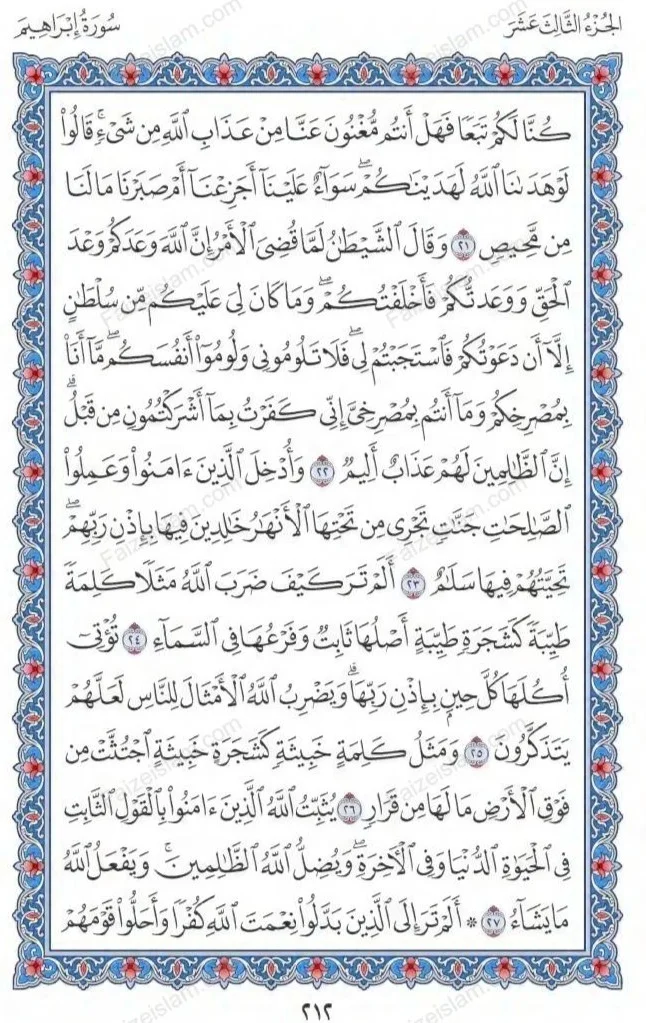 الجُزْءُ الثَّالِثَ عَشَرَ
سُورَةُ إِبْرَاهِيمَ
كُنَّا لَكُمْ تَبَعًا فَهَلْ أَنتُم مُّغْنُونَ عَنَّا مِنْ عَذَابِ ٱللَّهِ مِن شَىْءٍۚ قَالُوا۟
لَوْ هَدَىٰنَا ٱللَّهُ لَهَدَيْنَٰكُمْۖ سَوَآءٌ عَلَيْنَآ أَجَزِعْنَآ أَمْ صَبَرْنَا مَا لَنَا
مِن مَّحِيصٍ ٢١ وَقَالَ ٱلشَّيْطَٰنُ لَمَّا قُضِىَ ٱلْأَمْرُ إِنَّ ٱللَّهَ وَعَدَكُمْ وَعْدَ
ٱلْحَقِّ وَوَعَدتُّكُمْ فَأَخْلَفْتُكُمْۖ وَمَا كَانَ لِىَ عَلَيْكُم مِّن سُلْطَٰنٍ
إِلَّآ أَن دَعَوْتُكُمْ فَٱسْتَجَبْتُمْ لِىۖ فَلَا تَلُومُونِى وَلُومُوٓا۟ أَنفُسَكُمۖ مَّآ أَنَا۠
بِمُصْرِخِكُمْ وَمَآ أَنتُم بِمُصْرِخِىَّ إِنِّى كَفَرْتُ بِمَآ أَشْرَكْتُمُونِ مِن قَبْلُۗ
إِنَّ ٱلظَّٰلِمِينَ لَهُمْ عَذَابٌ أَلِيمٌ ٢٢ وَأُدْخِلَ ٱلَّذِينَ ءَامَنُوا۟ وَعَمِلُوا۟
ٱلصَّٰلِحَٰتِ جَنَّٰتٍ تَجْرِى مِن تَحْتِهَا ٱلْأَنْهَٰرُ خَٰلِدِينَ فِيهَا بِإِذْنِ رَبِّهِمْۖ
تَحِيَّتُهُمْ فِيهَا سَلَٰمٌ ٢٣ أَلَمْ تَرَ كَيْفَ ضَرَبَ ٱللَّهُ مَثَلًا كَلِمَةً
طَيِّبَةً كَشَجَرَةٍ طَيِّبَةٍ أَصْلُهَا ثَابِتٌ وَفَرْعُهَا فِى ٱلسَّمَآءِ ٢٤ تُؤْتِىٓ
أُكُلَهَا كُلَّ حِينٍۭ بِإِذْنِ رَبِّهَاۗ وَيَضْرِبُ ٱللَّهُ ٱلْأَمْثَالَ لِلنَّاسِ لَعَلَّهُمْ
يَتَذَكَّرُونَ ٢٥ وَمَثَلُ كَلِمَةٍ خَبِيثَةٍ كَشَجَرَةٍ خَبِيثَةٍ ٱجْتُثَّتْ مِن
فَوْقِ ٱلْأَرْضِ مَا لَهَا مِن قَرَارٍ ٢٦ يُثَبِّتُ ٱللَّهُ ٱلَّذِينَ ءَامَنُوا۟ بِٱلْقَوْلِ ٱلثَّابِتِ
فِى ٱلْحَيَوٰةِ ٱلدُّنْيَا وَفِى ٱلْءَاخِرَةِۖ وَيُضِلُّ ٱللَّهُ ٱلظَّٰلِمِينَۚ وَيَفْعَلُ ٱللَّهُ
مَا يَشَآءُ ٢٧ ۞ أَلَمْ تَرَ إِلَى ٱلَّذِينَ بَدَّلُوا۟ نِعْمَتَ ٱللَّهِ كُفْرًا وَأَحَلُّوا۟ قَوْمَهُمْ
٢١٢
Faizeislam.com